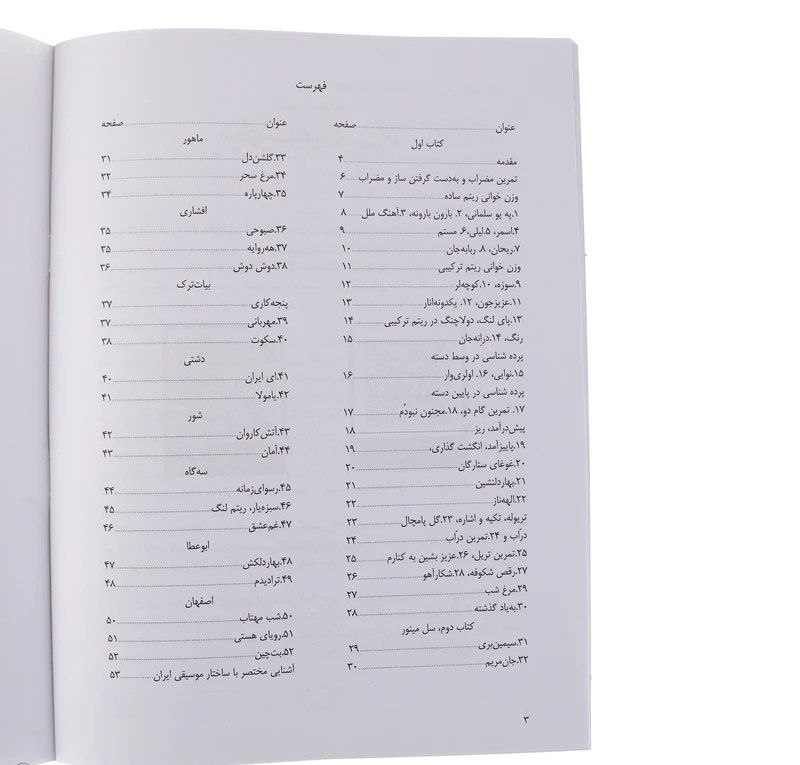 فهرست
عنوان ........ صفحه
کتاب اول
مقدمه ........ ۴
تمرین مضراب و به‌دست گرفتن ساز و مضراب ۶
وزن خوانی ریتم ساده ........ ۷
۱.په پو سلمانی، ۲. بارون بارونه، ۳.آهنگ ملل ۸
۴.اسمر، ۵.لیلی، ۶. مستم ........ ۹
۷.ریحان، ۸. ربابه‌جان ........ ۱۰
وزن خوانی ریتم ترکیبی ........ ۱۱
۹.سوزه، ۱۰.کوچه‌لر ........ ۱۲
۱۱.عزیزجون، ۱۲. یکدونه‌انار ........ ۱۳
۱۳.پای لنگ، دولاچنگ در ریتم ترکیبی ........ ۱۴
رنگ، ۱۴.درانه‌جان ........ ۱۵
پرده شناسی در وسط دسته
۱۵.نوایی، ۱۶. اولری‌وار ........ ۱۶
پرده شناسی در پایین دسته
۱۷. تمرین گام دو، ۱۸.مجنون نبودُم ........ ۱۷
پیش‌درآمد، ریز ........ ۱۸
۱۹.پاییزآمد، انگشت گذاری، ........ ۱۹
۲۰.غوغای ستارگان ........ ۲۰
۲۱.بهاردلنشین ........ ۲۱
۲۲.الهه‌ناز ........ ۲۲
تریوله، تکیه و اشاره، ۲۳.گل پامچال ........ ۲۳
درآب و ۲۴.تمرین درآب ........ ۲۴
۲۵.تمرین تریل، ۲۶.عزیز بشین به کنارم ........ ۲۵
۲۷.رقص شکوفه، ۲۸.شکارآهو ........ ۲۶
۲۹.مرغ شب ........ ۲۷
۳۰.به‌یاد گذشته ........ ۲۸
کتاب دوم، سل مینور
۳۱.سیمین‌بری ........ ۲۹
۳۲.جان‌مریم ........ ۳۰
عنوان ........ صفحه
ماهور
۳۳.گلشن‌دل ........ ۳۱
۳۴.مرغ سحر ........ ۳۲
۳۵.چهارپاره ........ ۳۴
افشاری
۳۶.صبوحی ........ ۳۵
۳۷.هه‌روایه ........ ۳۵
۳۸.دوش دوش ........ ۳۶
بیات‌ترک
پنجه‌کاری ........ ۳۷
۳۹.مهربانی ........ ۳۷
۴۰.سکوت ........ ۳۸
دشتی
۴۱.ای ایران ........ ۴۰
۴۲.یامولا ........ ۴۱
شور
۴۳.آتش‌کاروان ........ ۴۲
۴۴.امان ........ ۴۳
سه‌گاه
۴۵.رسوای‌زمانه ........ ۴۴
۴۶.سبزه‌یار، ریتم لنگ ........ ۴۵
۴۷.غم‌عشق ........ ۴۶
ابوعطا
۴۸.بهاردلکش ........ ۴۷
۴۹.ترادیدم ........ ۴۸
اصفهان
۵۰.شب مهتاب ........ ۵۰
۵۱.رویای هستی ........ ۵۱
۵۲.بت‌چین ........ ۵۲
آشنایی مختصر با ساختار موسیقی ایران ........ ۵۳
۳